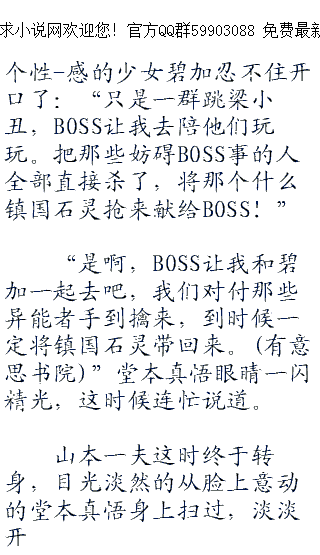 求小说网欢迎您！官方QQ群59903088 免费最新
个性-感的少女碧加忍不住开
口了：“只是一群跳梁小
丑，BOSS让我去陪他们玩
玩。把那些妨碍BOSS事的人
全部直接杀了，将那个什么
镇国石灵抢来献给BOSS！”
“是啊，BOSS让我和碧
加一起去吧，我们对付那些
异能者手到擒来，到时候一
定将镇国石灵带回来。(有意
思书院)”堂本真悟眼睛一闪
精光，这时候连忙说道。
山本一夫这时终于转
身，目光淡然的从脸上意动
的堂本真悟身上扫过，淡淡
开